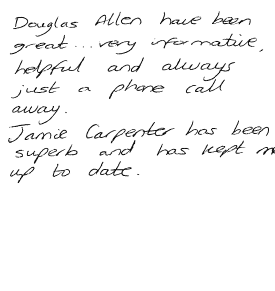 Douglas Allen have been
great...very informative,
helpful and always
just a phone call
away.
Jamie Carpenter has been
superb and has kept m
up to date.